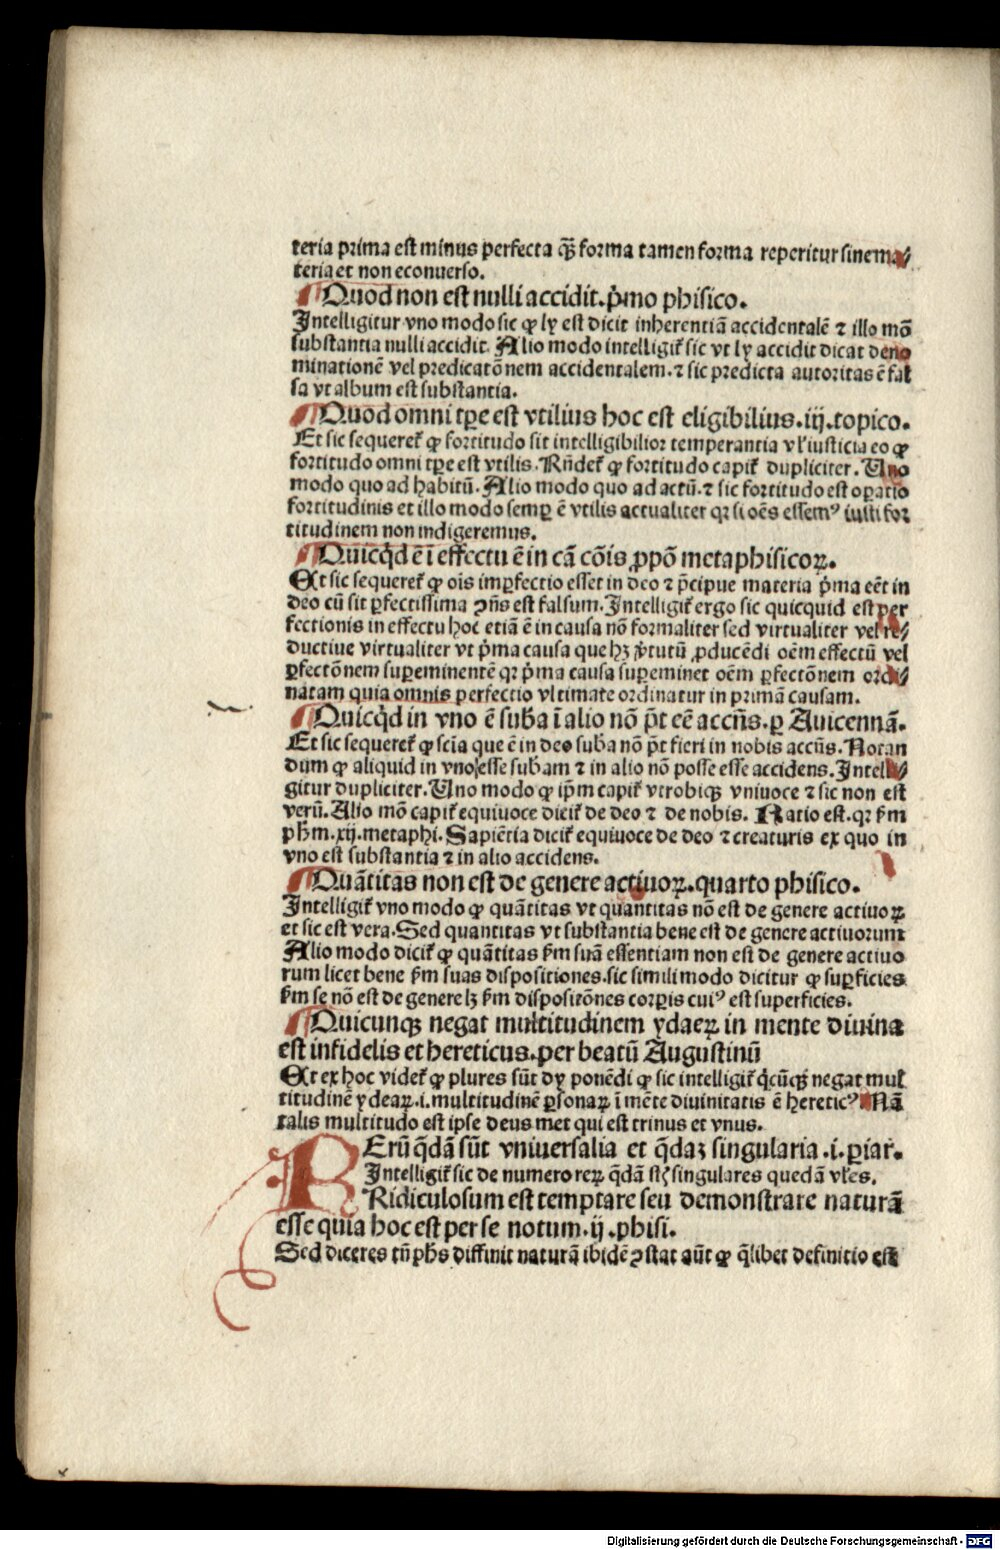 teria prima est minus perfecta qȝ̄ forma tamen forma reperitur sine ma⸗
teria et non econuerso.
¶Quod non est nulli accidit. p̍mo phisico.
Intelligitur vno modo sic ꝙ ly est dicit inherentiā accidentalē ⁊ illo mō
substantia nulli accidit. Alio modo intelligit̄ sic vt ly accidit dicat deno
minationē vel predicatōnem accidentalem. ⁊ sic predicta autoritas ē fal
sa vt album est substantia.
¶Quod omni tꝑe est vtilius hoc est eligibilius. iij. topico.
Et sic sequeret̄ ꝙ fortitudo sit intelligibilior temperantia vl̓ iusticia eo ꝙ
fortitudo omni tꝑe est vtilis. Rn̄det̄ ꝙ fortitudo capit̄ dupliciter. Uno
modo quo ad habitū. Alio modo quo ad actū. ⁊ sic fortitudo est oꝑatio
fortitudinis et illo modo semꝑ ē vtilis actualiter qꝛ si oēs essemꝰ iusti for
titudinem non indigeremus.
¶Quicq̍d ē ī effectu ē in cā cōis ꝓpō metaphisicoꝝ.
Et sic sequeret̄ ꝙ ois imꝑfectio esset in deo ⁊ p̄cipue materia p̍ma eēt in
deo cū sit ꝑfectissima ꝯn̄s est falsum. Intelligit̄ ergo sic quicquid est per
fectionis in effectu hoc etiā ē in causa nō formaliter sed virtualiter vel re⸗
ductiue virtualiter vt p̍ma causa que hȝ v̍tutū ꝓducēdi oēm effectū vel
ꝑfectōnem supereminentē qꝛ p̍ma causa suꝑeminet oēm ꝑfectōnem ordi⸗
natam quia omnis perfectio vltimate ordinatur in primā causam.
¶Quicq̍d in vno ē suba̅ ī alio nō pt̄ eē accn̄s. ꝑ Auicennā.
Et sic sequeret̄ ꝙ scīa que ē in deo suba̅ nō pt̄ fieri in nobis accn̄s. Notan
dum ꝙ aliquid in vno esse suba̅m ⁊ in alio nō posse esse accidens. Intelli⸗
gitur dupliciter. Uno modo ꝙ ip̄m capit̄ vtrobiqȝ vniuoce ⁊ sic non est
verū. Alio mō capit̄ equiuoce dicit̄ de deo ⁊ de nobis. Ratio est. qꝛ ẜm
ph̄m. xij. metaphi. Sapiētia dicit̄ equiuoce de deo ⁊ creaturis ex quo in
vno est substantia ⁊ in alio accidens.
¶Quātitas non est de genere actiuoꝝ. quarto phisico.
Intelligit̄ vno modo ꝙ quātitas vt quantitas nō est de genere actiuoꝝ
et sic est vera. Sed quantitas vt substantia bene est de genere actiuorum
Alio modo dicit̄ ꝙ quātitas ẜm suā essentiam non est de genere actiuo
rum licet bene ẜm suas dispositiones. sic simili modo dicitur ꝙ suꝑficies
ẜm se nō est de genere lȝ ẜm dispositōnes corꝑis cuiꝰ est superficies.
¶Quicunqȝ negat multitudinem ydaeꝝ in mente diuina
est infidelis et hereticus. per beatū Augustinū
Et ex hoc videt̄ ꝙ plures sūt dy ponēdi ꝙ sic intelligit̄ q̍cūqȝ negat mul
titudinē ydeaꝝ. i. multitudinē ꝑsonaꝝ ī mēte diuinitatis ē hereticꝰ Nā
talis multitudo est ipse deus met qui est trinus et vnus.
RErū q̄dā sūt vniuersalia et q̄daȝ singularia. i. ꝑiar̄.
Intelligit̄ sic de numero reꝝ q̄dā sūt singulares quedā vl̓es.
Ridiculosum est temptare seu demonstrare naturā
esse quia hoc est per se notum. ij. phisi.
Sed diceres tn̄ ph̄s diffinit naturā ibidē ꝯstat aūt ꝙ q̄libet definitio est
Digitalisierung gefördert durch die Deutsche Forschungsgemeinschaft - DFG